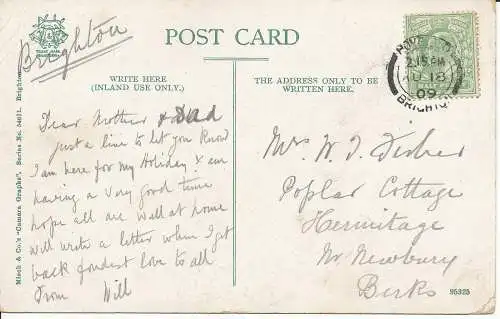 Brighton
POST CARD
WRITE HERE
(INLAND USE ONLY.)
THE ADDRESS ONLY TO BE
WRITTEN HERE.
Misch & Co.'s "Camera Graphs". Series No. Brighton
2.15 AM
AU 18
09
BRIGHTON
Dear Mother & Dad
just a line to let you know
I am here for my Holiday & em
having a very good time
hope all are well at home
will write a letter when I get
back fondest love to all
From Will
Mrs W. J. Fisher
Poplar Cottage
Hermitage
Nr Newbury
Berks
95325